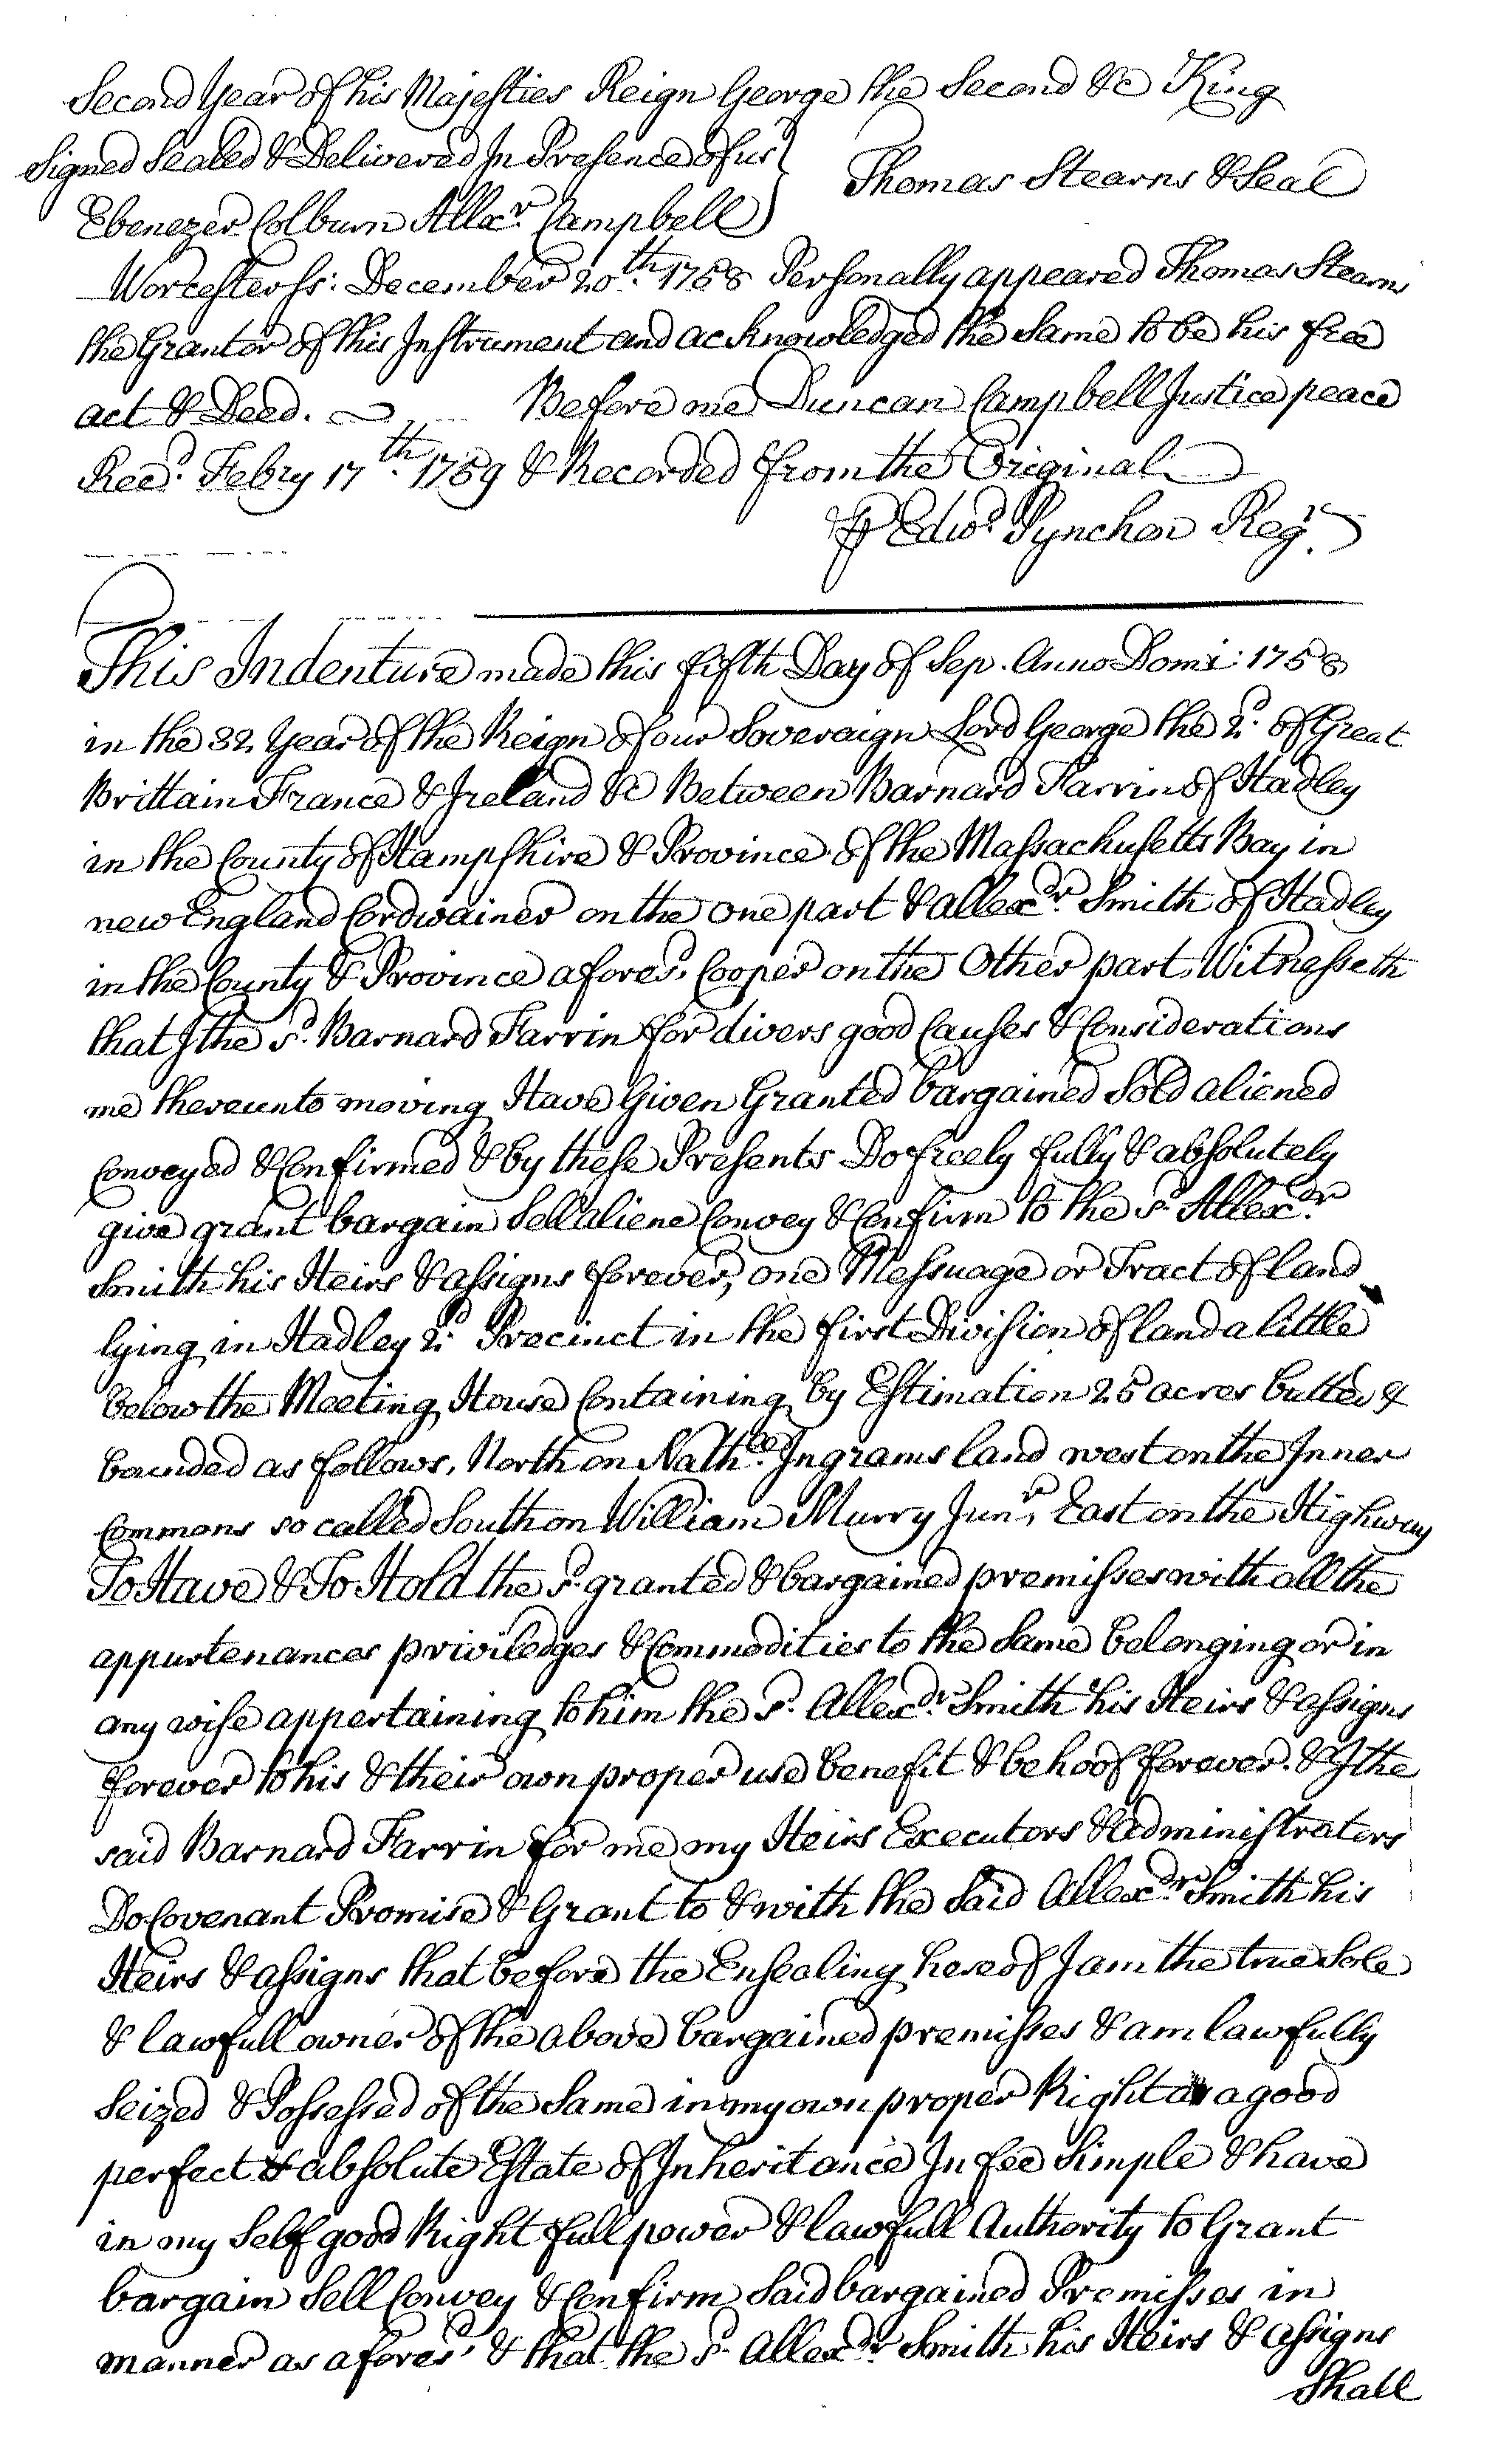 Second Year of his Majesties Reign George the Second &c King
Signed Sealed & Delivered In Presence of us } Thomas Stearns & Seal
Ebenezer Colburn Allexr. Campbell
Worcester ss: December 20th. 1758 Personally appeared Thomas Stearns
the Grantor of this Instrument and acknowledged the Same to be his free
act & Deed. Before me Duncan Campbell Justice peace
Recd. Febry 17th. 1759 & Recorded from the Original
⅌ Edwd. Pynchon Regr.
This Indenture made this fifth Day of Sep. Anno Domi: 1758
in the 32 Year of the Reign of our Soveraign Lord George the 2d. of Great
Brittain France & Ireland &c Between Barnard Farrin of Hadley
in the County of Hampshire & Province of the Massachusetts Bay in
new England Cordwainer on the one part & allexdr. Smith of Hadley
in the County & Province aforesd. Cooper on the Other part, Witnesseth
that I the sd. Barnard Farrin for divers good Causes & Considerations
me thereunto moving Have Given Granted bargained Sold aliened
Conveyed & Confirmed & by these Presents Do freely fully & absolutely
give grant bargain Sell aliene Convey & Confirm to the sd. Allexdr.
Smith his Heirs & assigns forever, one Messuage or Tract of land
lying in Hadley 2d. Precinct in the first Division of land a little
below the Meeting House Containing by Estimation 25 acres butted &
bounded as follows, North on Nathll. Ingrams land west on the Inner
Commons so called South on William Murry Junr, East on the Highway
To Have & To Hold the sd. granted & bargained premisses with all the
appurtenances priviledges & Commodities to the Same belonging or in
any wise appertaining to him the sd. Allexdr. Smith his Heirs & assigns
forever to his & their own proper use benefit & behoof forever. & I the
said Barnard Farrin for me my Heirs Executors & administrators
Do Covenant Promise & Grant to & with the Said Allexdr. Smith his
Heirs & assigns that before the Ensealing hereof I am the true Sole
& lawfull owner of the above bargained premisses & am lawfully
Seized & Possessed of the Same in my own proper Right as a good
perfect & absolute Estate of Inheritance In fee Simple & have
in my Self good Right full power & lawfull Authority to Grant
bargain Sell Convey & Confirm Said bargained Premisses in
manner as aforesd & that the sd. Allexdr Smith his Heirs & assigns
Shall